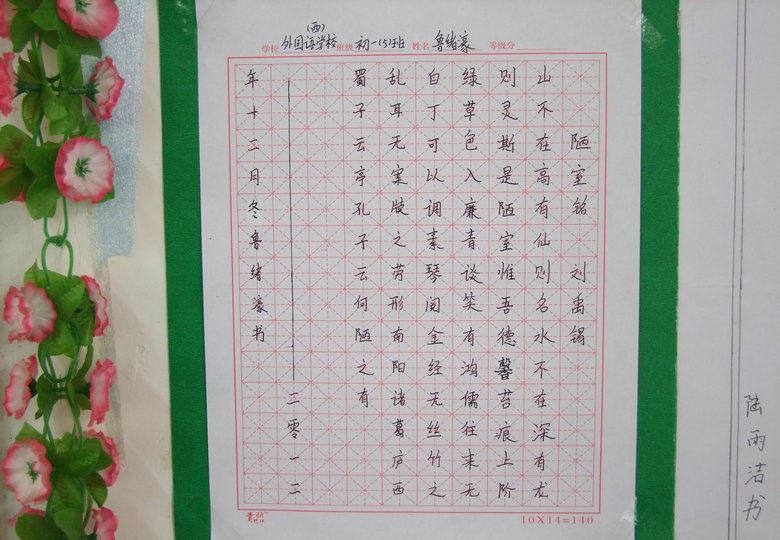 (西)
学校 外国语学校 班级 初一(5)班 姓名 鲁绪濠 等级分
陋室铭 刘禹锡
山不在高有仙则名水不在深有龙
则灵斯是陋室惟吾德馨苔痕上阶
绿草色入廉青谈笑有鸿儒往来无
白丁可以调素琴阅金经无丝竹之
乱耳无案牍之劳形南阳诸葛庐西
蜀子云亭孔子云何陋之有
二零一二
年十二月冬鲁绪濠书
10X14=140
陆雨洁书